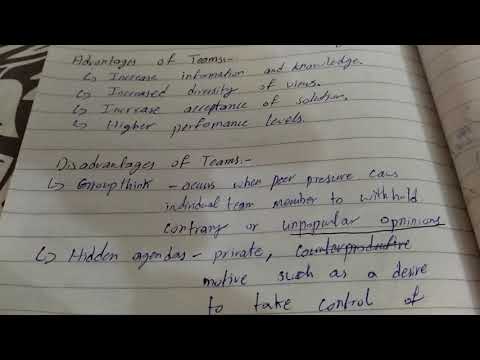 Advantages of Teams:-
↳ Increase information and knowledge.
↳ Increased diversity of views.
↳ Increase acceptance of solution.
↳ Higher perfomance levels.
Disadvantages of Teams:-
↳ Groupthink - occurs when peer pressure
individual team member to withhold
contrary or unpopular opninions
↳ Hidden agendas - private, counterproductive
motive such as a desire
to take control of